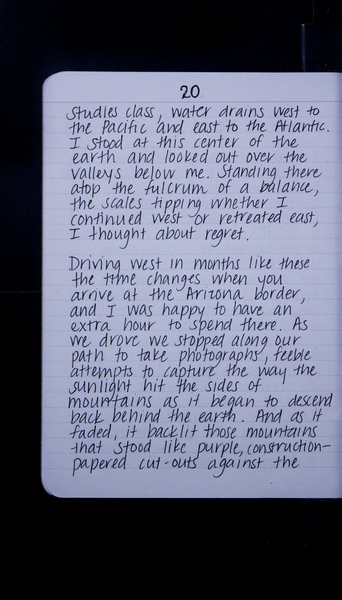 20
studies class, water drains west to
the Pacific and east to the Atlantic.
I stood at this center of the
earth and looked out over the
valleys below me. Standing there
atop the fulcrum of a balance,
the scales tipping whether I
continued west or retreated east,
I thought about regret.
Driving west in months like these
the time changes when you
arrive at the Arizona border,
and I was happy to have an
extra hour to spend there. As
we drove we stopped along our
path to take photographs, feeble
attempts to capture the way the
sunlight hit the sides of
mountains as it began to descend
back behind the earth. And as it
faded, it backlit those mountains
that stood like purple, construction-
papered cut-outs against the